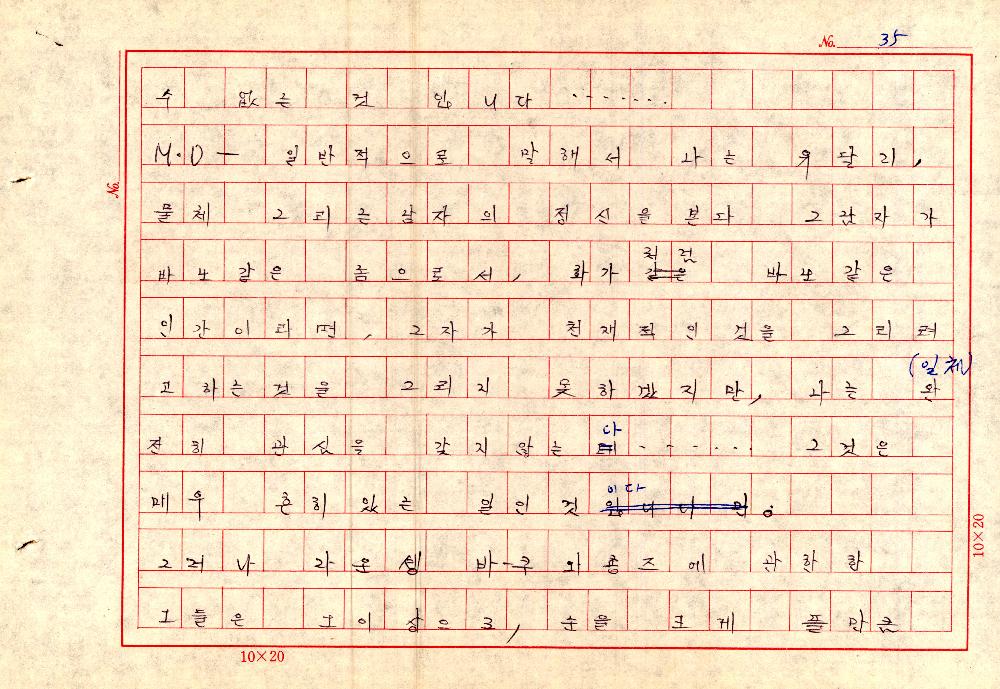 No. 35
수 없는 것 입니다 ·······
M·D— 일반적으로 말해서 나는 우달리,
물체 그리는 감자의 정신을 본다 그감자가
바보같은 놈으로서, 화가처럼 바보같은
인간이라면, 그자가 천재적인 것을 그리려
고하는것을 그리지 못하겠지만, 나는 (일체) 완
전히 관심을 갖지 않는다 ······ 그것은
매우 흔히 있는 일인 것이다.
그러나 라운셍 바-쿠와 죤즈에 관한한
그들은 그이상으로, 손을 크게 플만큼
10×20
10×20
No.